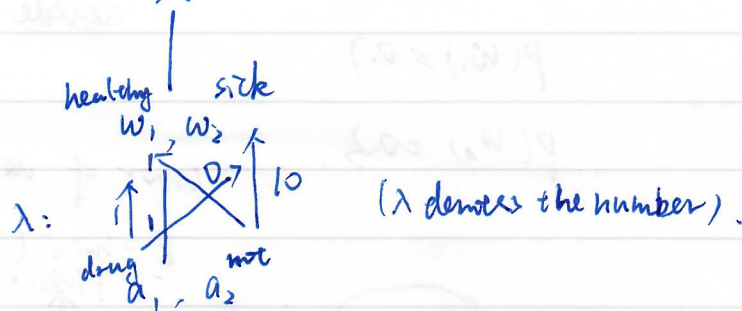 healthy sick
w₁, w₂
1 0 10
λ: 1 (λ denotes the number).
drug not
a₁, a₂